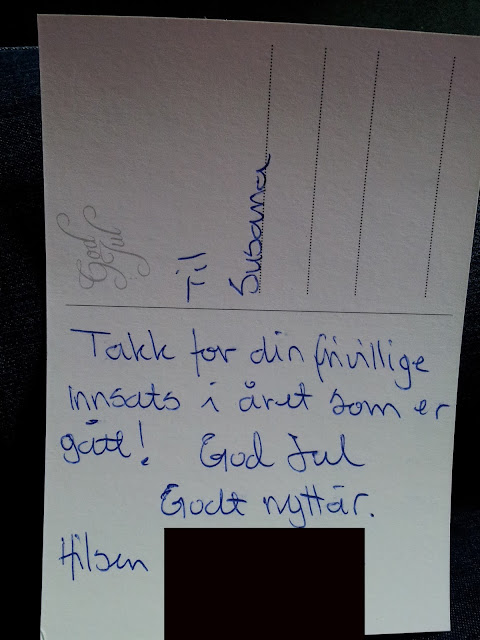 God
Jul
Til
Susana
Takk for din frivillige
innsats i året som er
gått! God Jul
Godt nyttår.
Hilsen